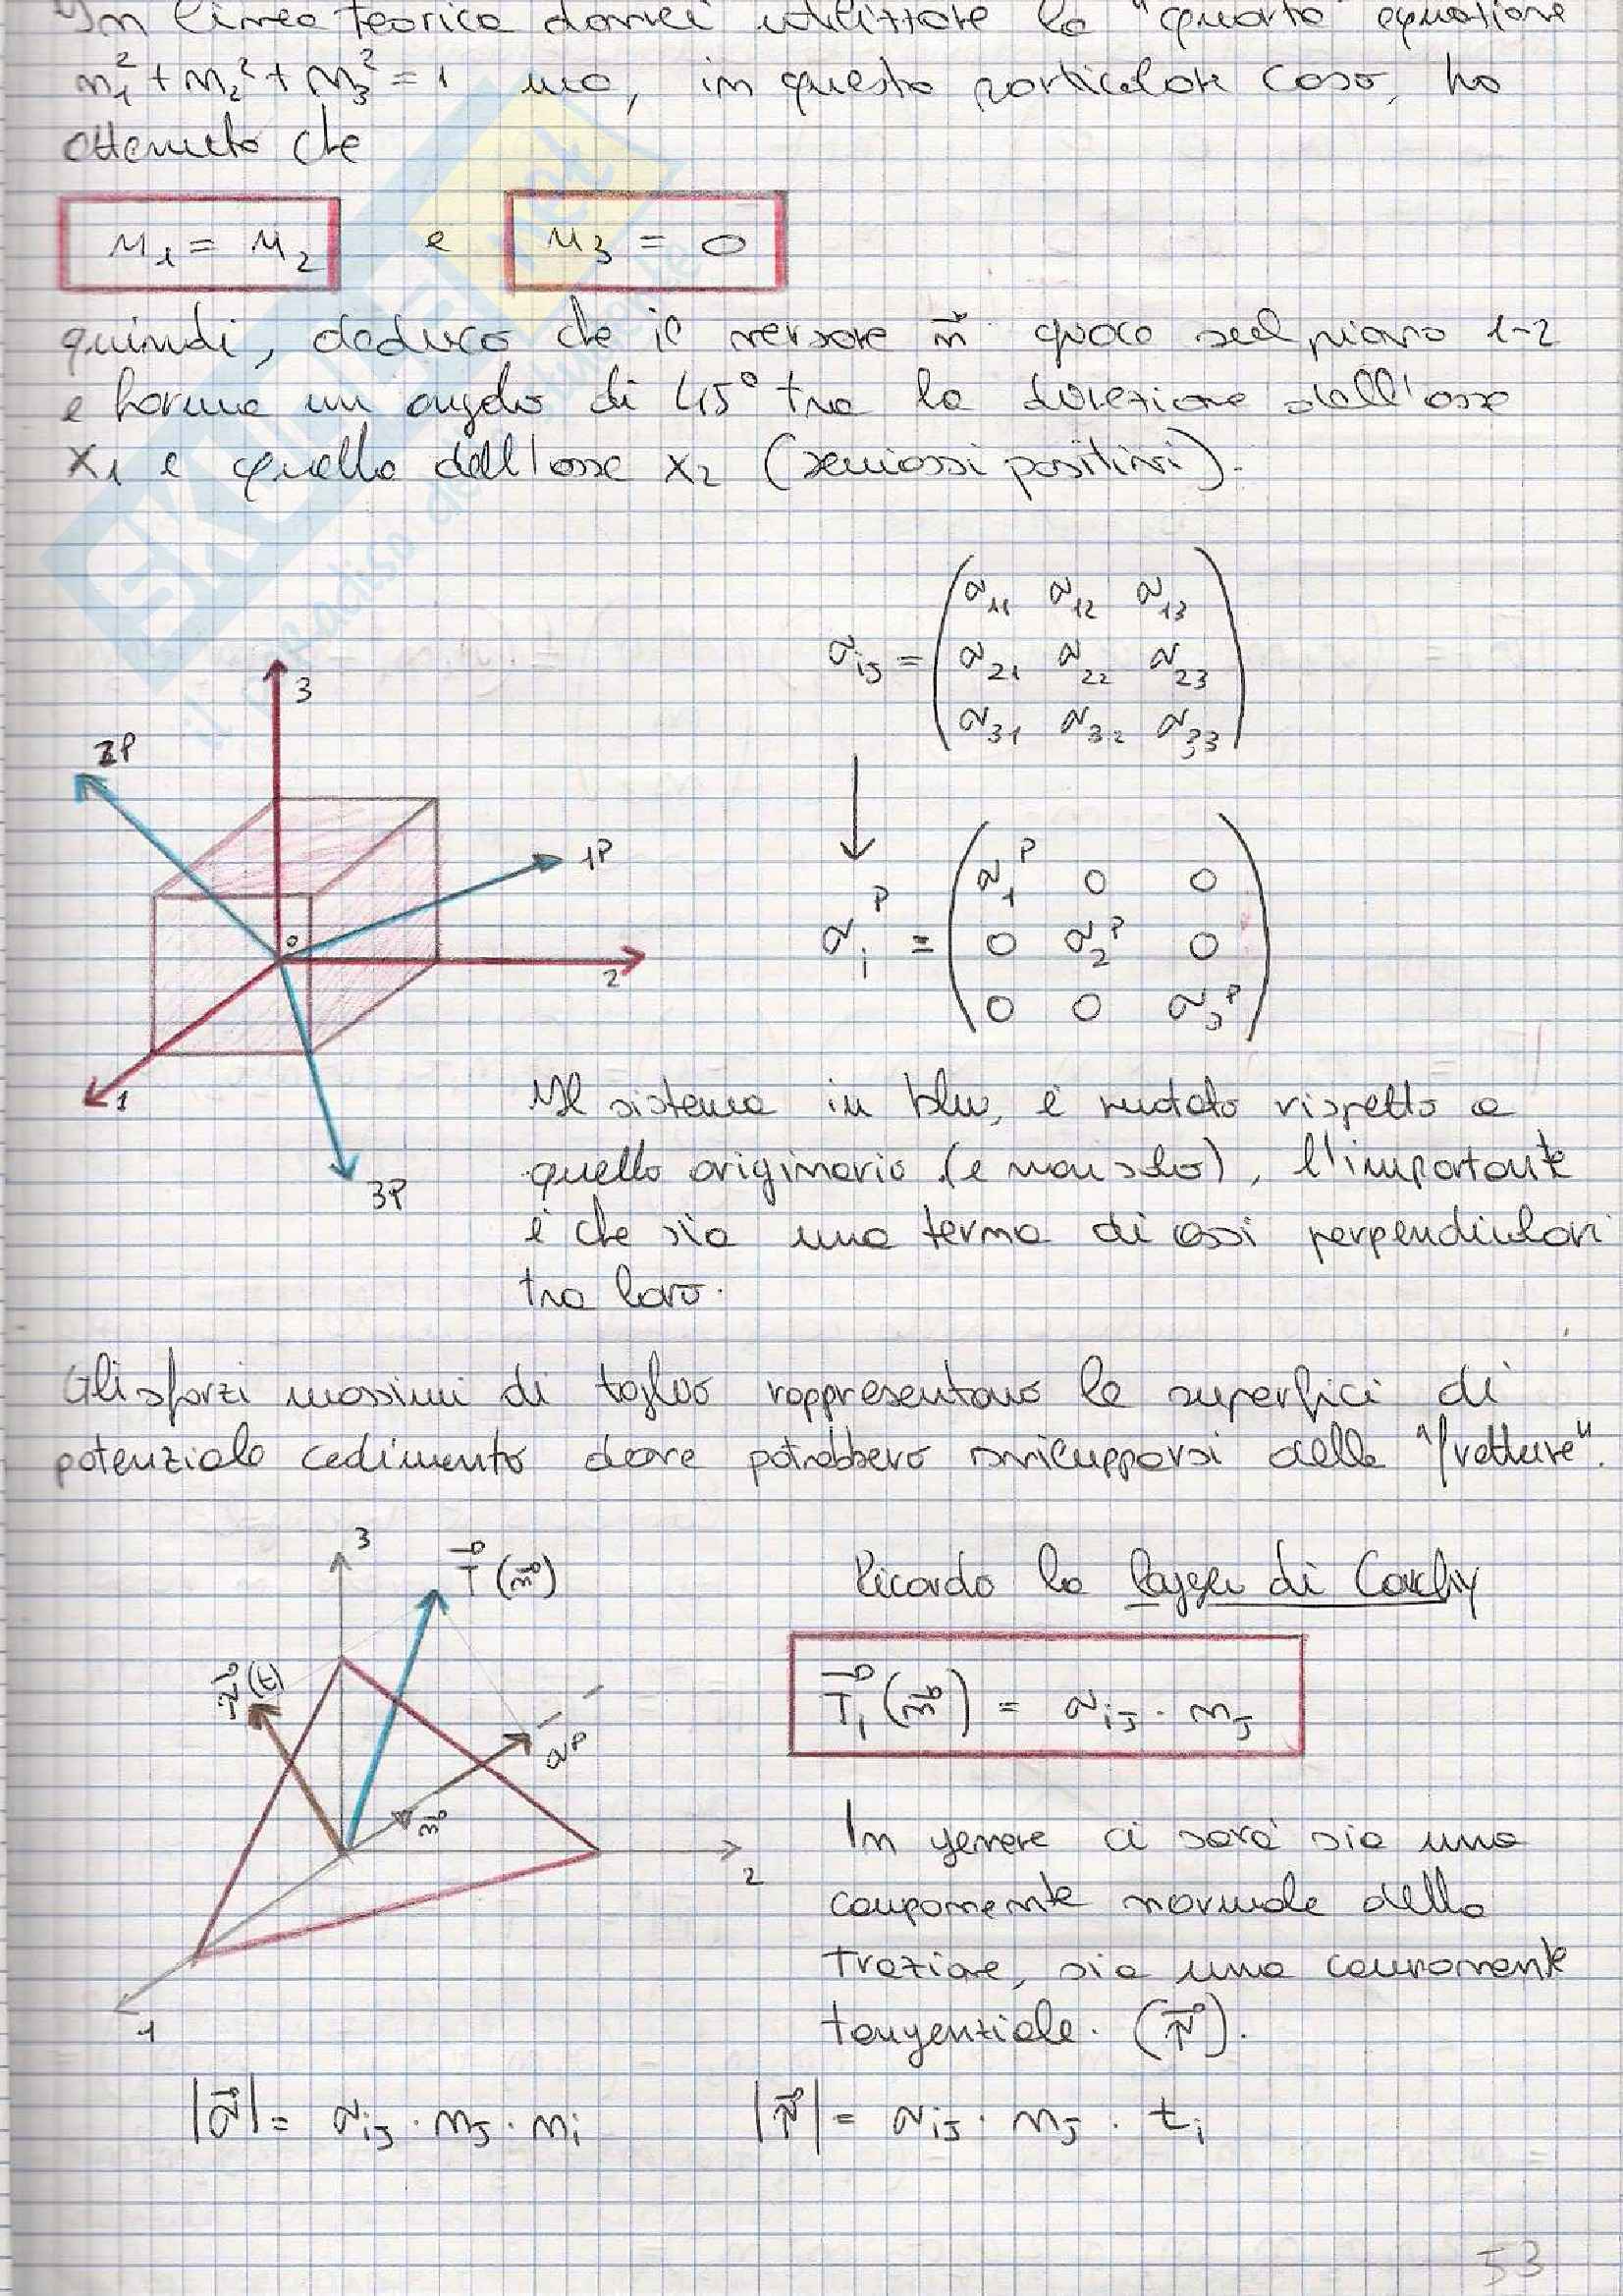 In linea teorica dovrei utilizzare la "quarta" equazione
n₁² + n₂² + n₃² = 1 ma, in questo particolare caso, ho
ottenuto che
n₁ = n₂ e n₃ = 0
quindi, deduco che il versore n⃗ giace sul piano 1-2
e forma un angolo di 45° tra la direzione dell'asse
x₁ e quella dell'asse x₂ (semiassi positivi).
σij = (σ11 σ12 σ13
σ21 σ22 σ23
σ31 σ32 σ33)
3
2P
1P
0
2
1
3P
σi^P = (σ1^P 0 0
0 σ2^P 0
0 0 σ3^P)
Il sistema in blu, è ruotato rispetto a
quello originario (e non solo), l'importante
è che sia una terna di assi perpendicolari
tra loro.
Gli sforzi massimi di taglio rappresentano le superfici di
potenziale cedimento dove potrebbero svilupparsi delle "fratture".
3
T⃗(n⃗)
τ⃗(t)
σP
n⃗
2
1
Ricordo la Legge di Cauchy
T⃗i(n⃗) = σij · nj
In genere ci sarà sia una
componente normale della
trazione, sia una componente
tangenziale. (τ⃗).
|σ⃗| = σij · nj · ni |τ⃗| = σij · nj · ti
53
SKUOLA.net
il paradiso dello studente